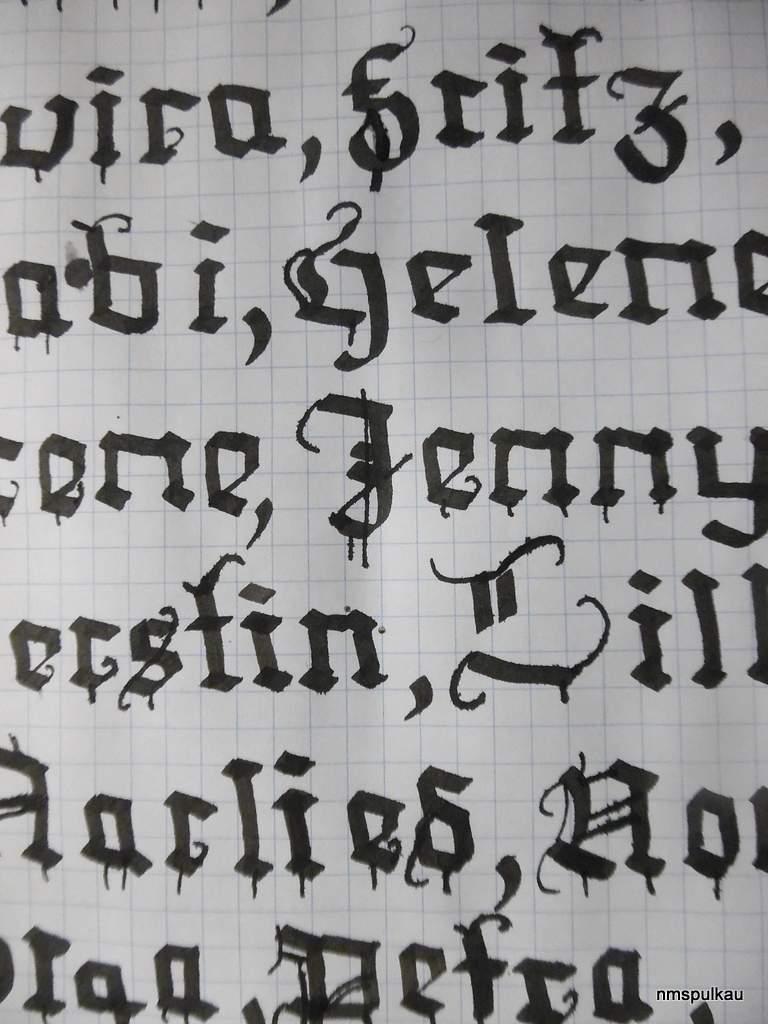 vira, Fritz,
abi, Helene
rene, Jenny
erstin, Lill
Marlies, No
Olga, Petra,
nmspulkau